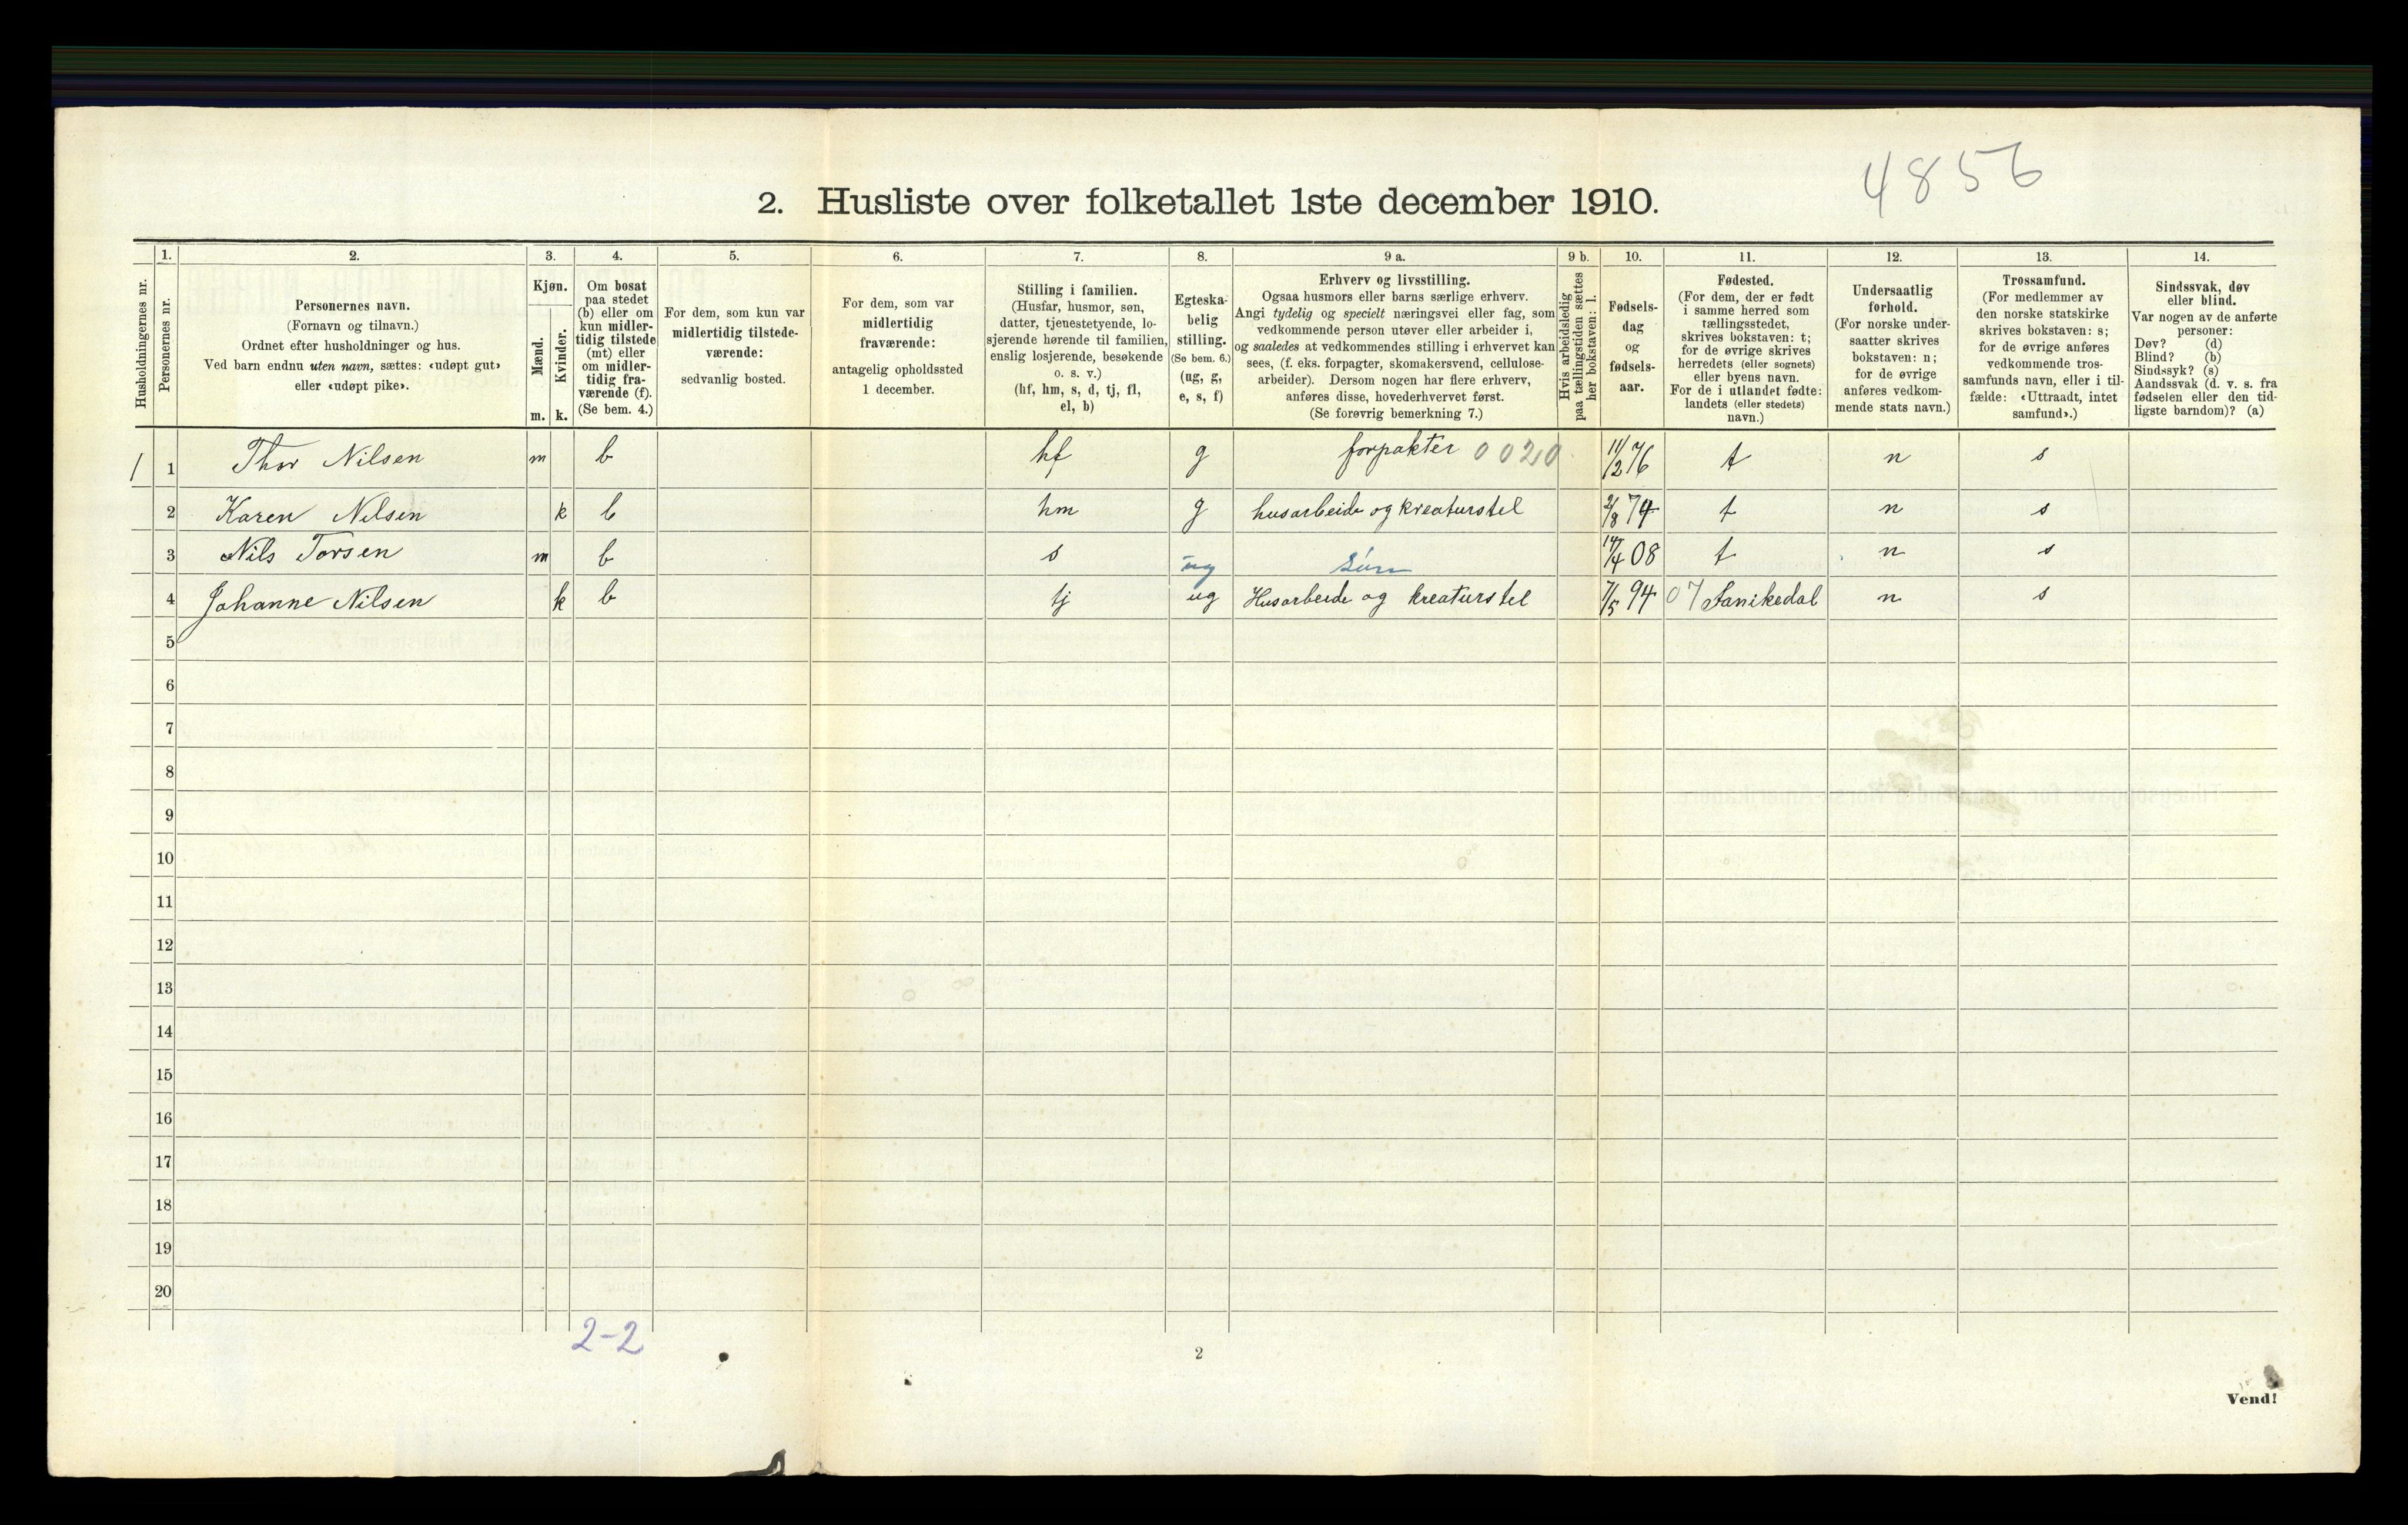 4856
2. Husliste over folketallet 1ste december 1910.
Husholdningernes nr.
1.
Personernes nr.
2.
Personernes navn.
(Fornavn og tilnavn.)
Ordnet efter husholdninger og hus.
Ved barn endnu uten navn, sættes: «udøpt gut»
eller «udøpt pike».
3.
Kjøn.
Mænd.
m.
Kvinder.
k.
4.
Om bosat
paa stedet
(b) eller om
kun midler-
tidig tilstede
(mt) eller
om midler-
tidig fra-
værende (f).
(Se bem. 4.)
5.
For dem, som kun var
midlertidig tilstede-
værende:
sedvanlig bosted.
6.
For dem, som var
midlertidig
fraværende:
antagelig opholdssted
1 december.
7.
Stilling i familien.
(Husfar, husmor, søn,
datter, tjenestetyende, lo-
sjerende hørende til familien,
enslig losjerende, besøkende
o. s. v.)
(hf, hm, s, d, tj, fl,
el, b)
8.
Egteska-
belig
stilling.
(Se bem. 6.)
(ug, g,
e, s, f)
9 a.
Erhverv og livsstilling.
Ogsaa husmors eller barns særlige erhverv.
Angi tydelig og specielt næringsvei eller fag, som
vedkommende person utøver eller arbeider i,
og saaledes at vedkommendes stilling i erhvervet kan
sees, (f. eks. forpagter, skomakersvend, cellulose-
arbeider). Dersom nogen har flere erhverv,
anføres disse, hovederhvervet først.
(Se forøvrig bemerkning 7.)
9 b.
Hvis arbeidsledig
paa tællingstiden sættes
her bokstaven: l.
10.
Fødsels-
dag
og
fødsels-
aar.
11.
Fødested.
(For dem, der er født
i samme herred som
tællingsstedet,
skrives bokstaven: t;
for de øvrige skrives
herredets (eller sognets)
eller byens navn.
For de i utlandet fødte:
landets (eller stedets)
navn.)
12.
Undersaatlig
forhold.
(For norske under-
saatter skrives
bokstaven: n;
for de øvrige
anføres vedkom-
mende stats navn.)
13.
Trossamfund.
(For medlemmer av
den norske statskirke
skrives bokstaven: s;
for de øvrige anføres
vedkommende tros-
samfunds navn, eller i til-
fælde: «Uttraadt, intet
samfund».)
14.
Sindssvak, døv
eller blind.
Var nogen av de anførte
personer:
Døv? (d)
Blind? (b)
Sindssyk? (s)
Aandssvak (d. v. s. fra
fødselen eller den tid-
ligste barndom)? (a)
1 1 Thor Nilsen m b hf g forpakter 0020 11/2 76 t n s
2 Karen Nilsen k b hm g husarbeide og kreaturstel 2/8 74 t n s
3 Nils Torsen m b s ug Søn 14/4 08 t n s
4 Johanne Nilsen k b tj ug Husarbeide og kreaturstel 7/5 94 07 Sanikedal n s
5
6
7
8
9
10
11
12
13
14
15
16
17
18
19
20
2-2
2
Vend!